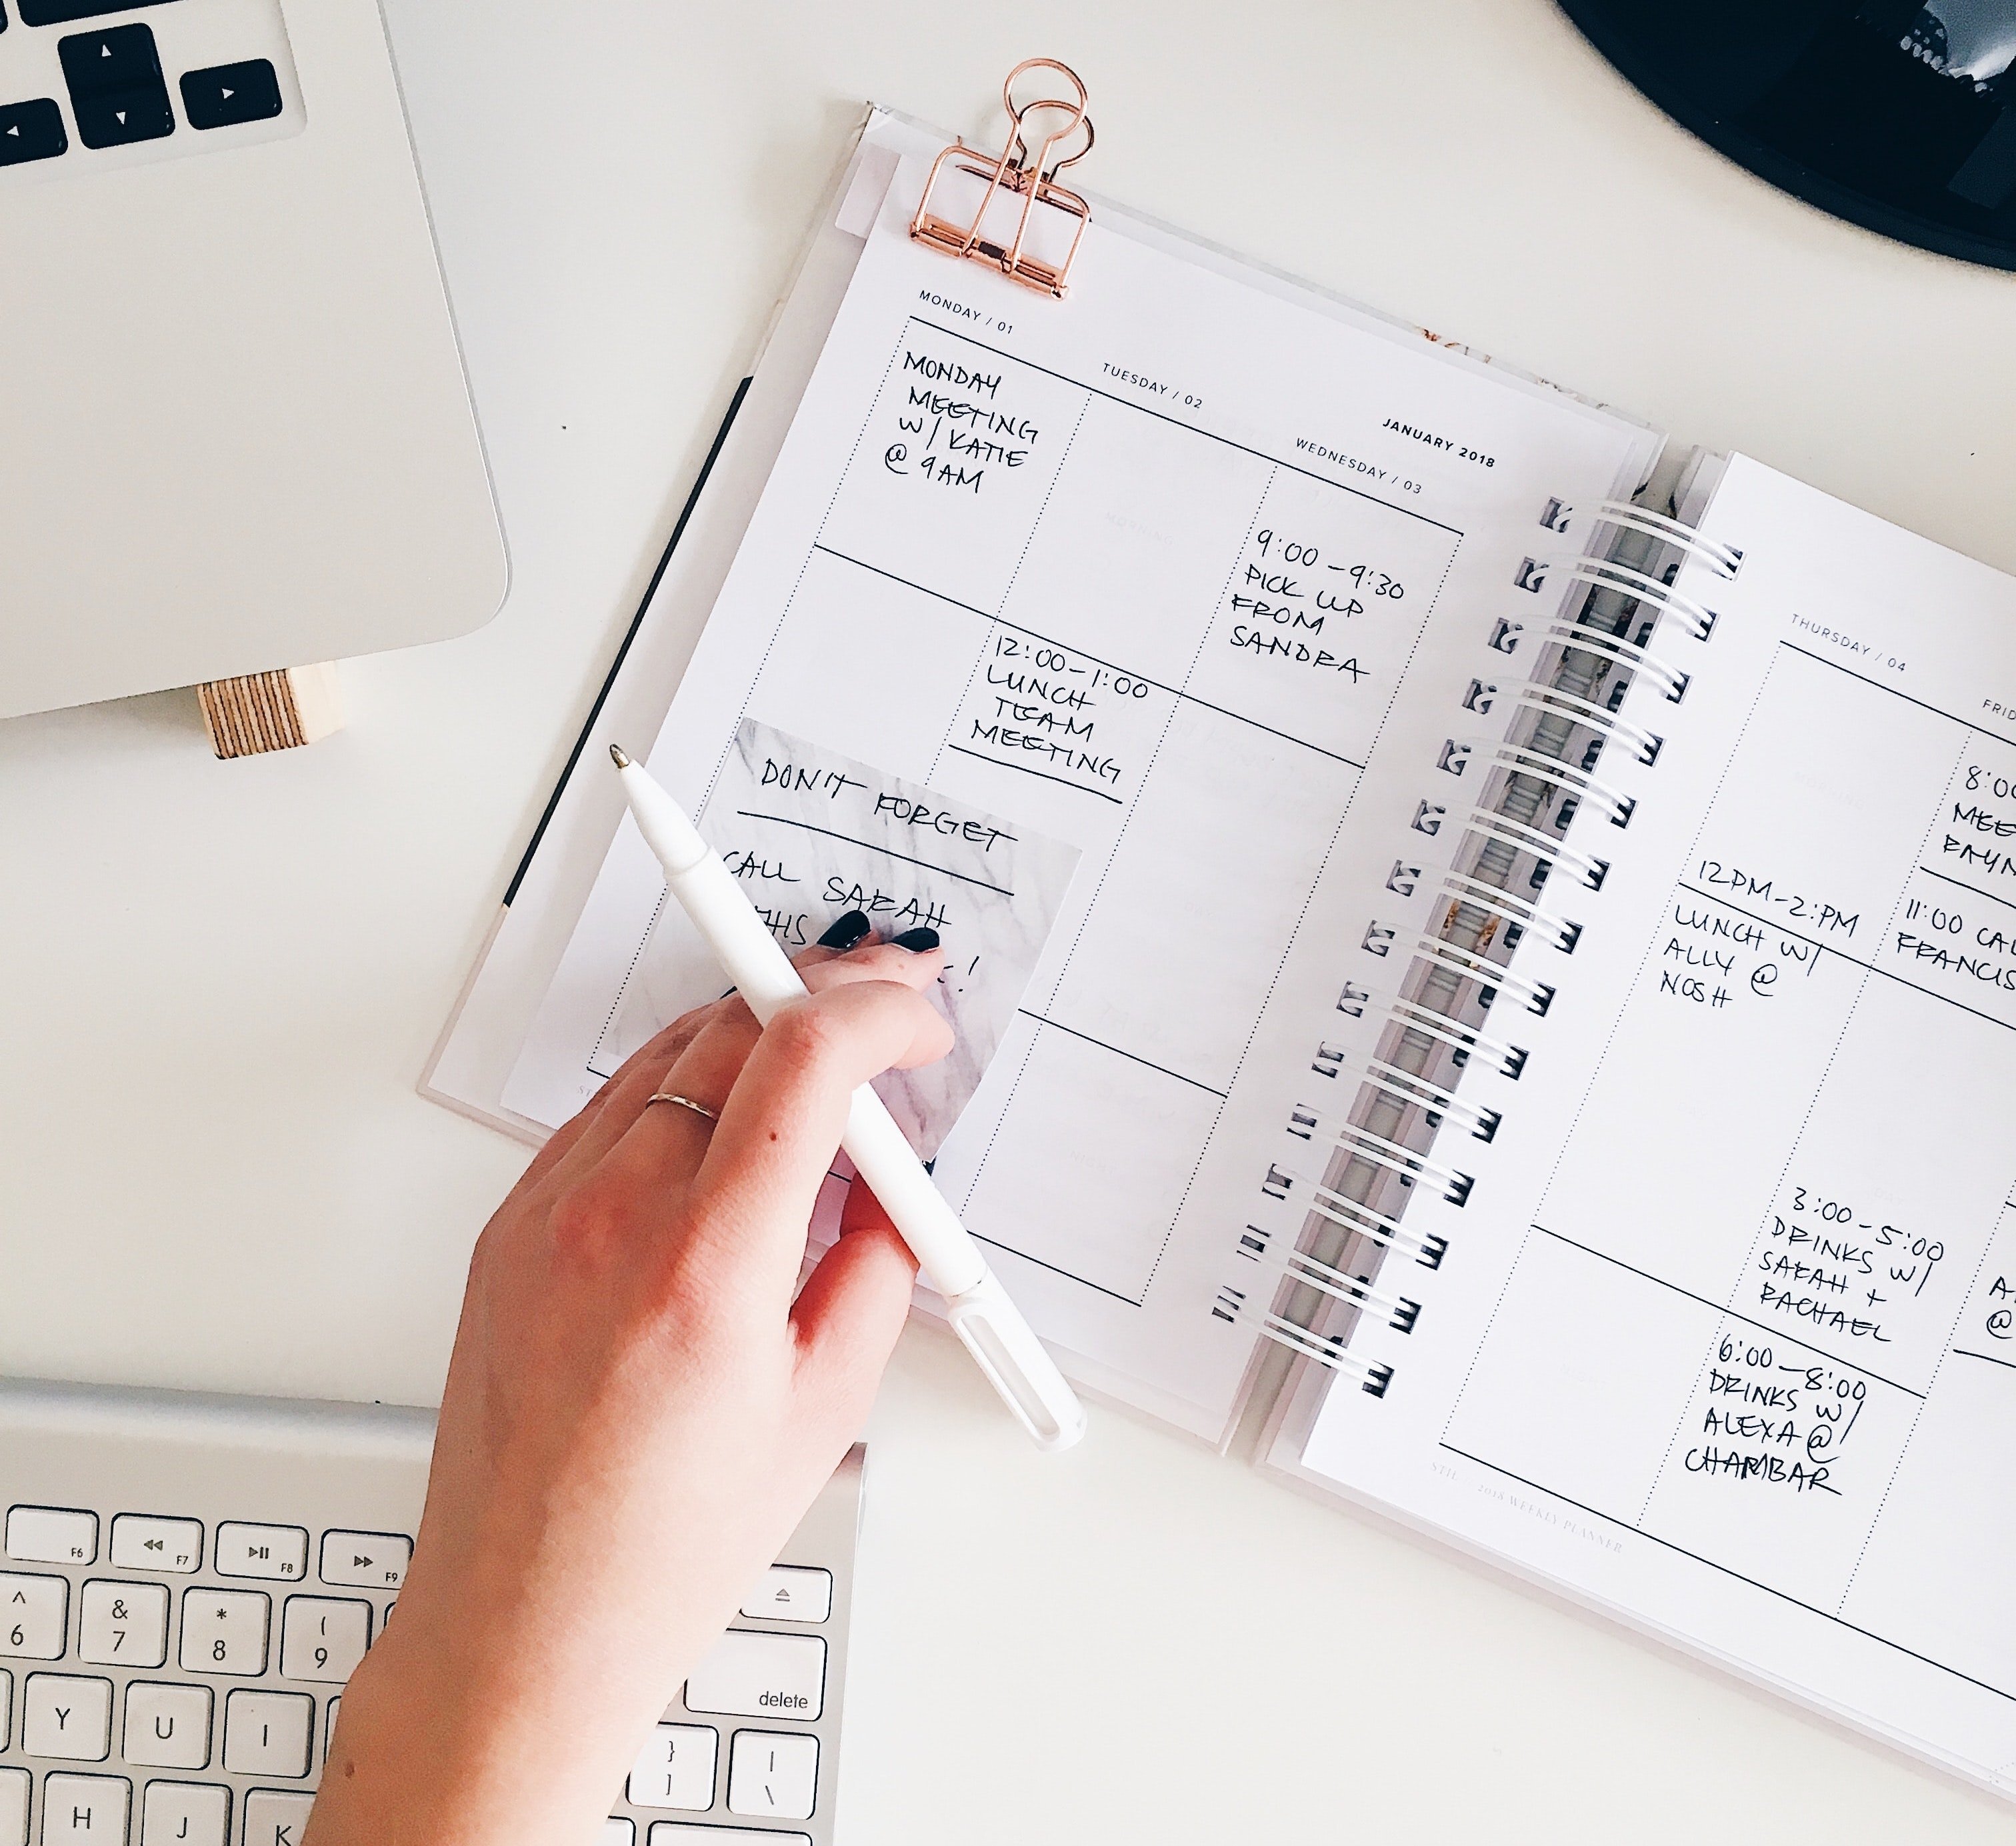 MONDAY / 01
MONDAY
MEETING
W/ KATIE
@ 9AM
TUESDAY / 02
12:00-1:00
LUNCH
TEAM
MEETING
JANUARY 2018
WEDNESDAY / 03
9:00-9:30
PICK UP
FROM
SANDRA
DON'T FORGET
CALL SARAH
THIS
!
THURSDAY / 04
12PM-2:PM
LUNCH W/
ALLY @
NOSH
FRID
8:00
MEE
11:00 CAL
FRANCIS
3:00-5:00
DRINKS W/
SARAH +
RACHAEL
6:00-8:00
DRINKS W/
ALEXA @
CHAMBAR
A
@
STH 2018 WEEKLY PLANNER
F6
F7
F8
F9
^
6
&
7
*
8
(
9
delete
Y
U
I
}
]
|
\
H
J
K